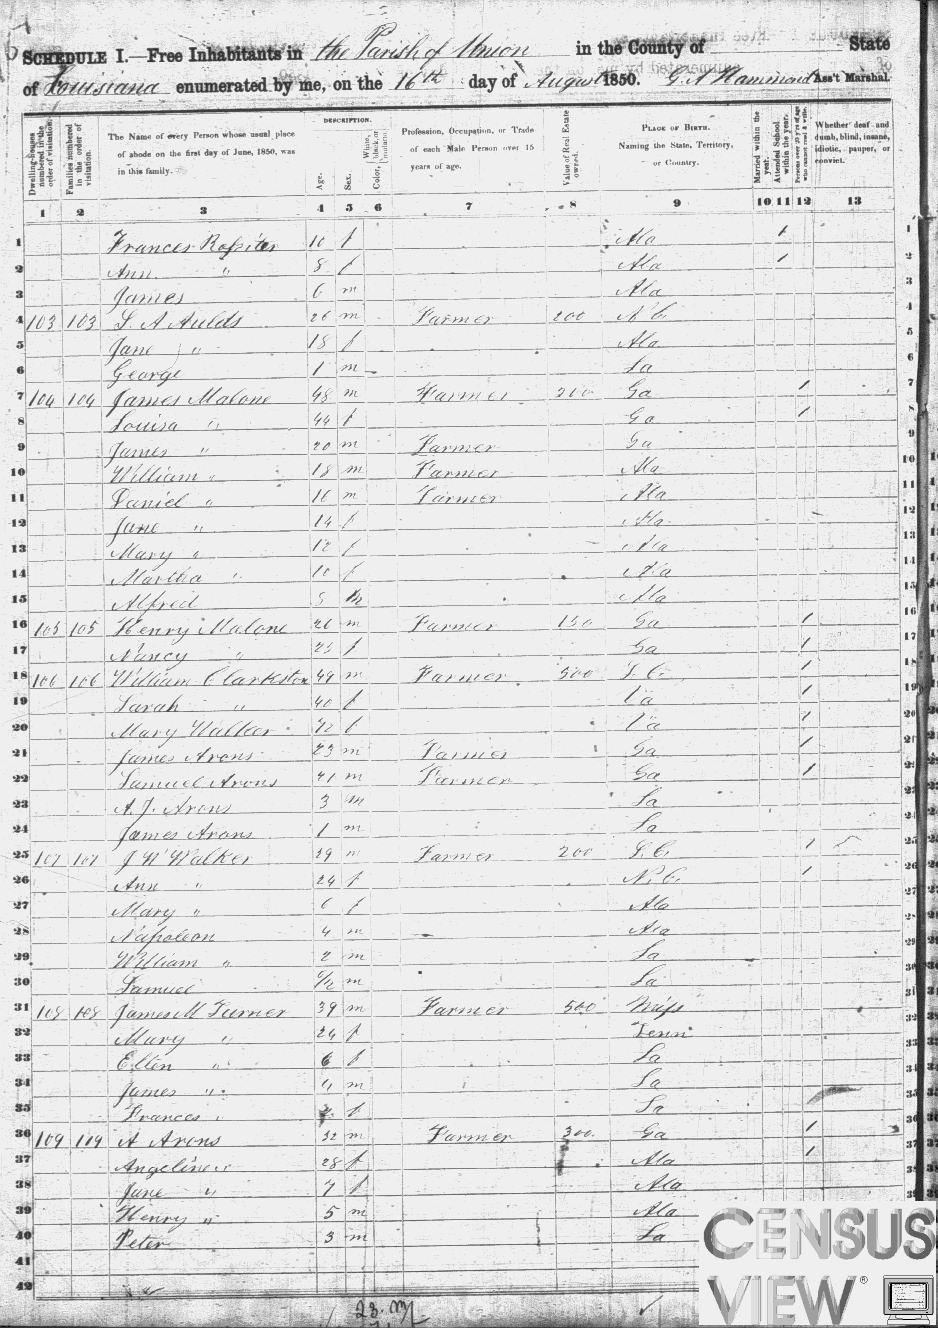 SCHEDULE I.—Free Inhabitants in the Parish of Union in the County of State
of Louisiana enumerated by me, on the 16th day of August 1850. G. A. Hammond Ass't Marshal.
Dwelling-houses numbered in the order of visitation.
Families numbered in the order of visitation.
The Name of every Person whose usual place of abode on the first day of June, 1850, was in this family.
DESCRIPTION.
Age.
Sex.
Color, White, black, or mulatto.
Profession, Occupation, or Trade of each Male Person over 15 years of age.
Value of Real Estate owned.
PLACE OF BIRTH. Naming the State, Territory, or Country.
Married within the year.
Attended School within the year.
Persons over 20 y'rs of age who cannot read & write.
Whether deaf and dumb, blind, insane, idiotic, pauper, or convict.
1 2 3 4 5 6 7 8 9 10 11 12 13
1 Frances 10 f Ala / 1
2 Ann " 8 f Ala / 2
3 James 6 m Ala 3
4 103 103 L A Aulds 26 m Farmer 200 N C 4
5 Jane " 18 f Ala 5
6 George 1 m La 6
7 104 104 James Malone 48 m Farmer 200 Ga / 7
8 Louisa " 44 f Ga / 8
9 James " 20 m Farmer Ga 9
10 William " 18 m Farmer Ala 10
11 Daniel " 16 m Farmer Ala 11
12 Jane " 14 f Ala 12
13 Mary " 12 f Ala 13
14 Martha " 10 f Ala 14
15 Alfred m Ala 15
16 105 105 Henry Malone 26 m Farmer 150 Ga / 16
17 Nancy " 23 f Ga / 17
18 106 106 William Clarkston 49 m Farmer 500 S. C. / 18
19 Sarah " 40 f Va / 19
20 Mary Walker 72 f Va / 20
21 James Arons 23 m Farmer Ga / 21
22 Samuel Arons 21 m Farmer Ga / 22
23 A. J. Arons 3 m La 23
24 James Arons 1 m La 24
25 107 107 J W Walker 29 m Farmer 200 S. C. / 25
26 Ann " 24 f N. C. / 26
27 Mary " 6 f Ala 27
28 Napoleon 4 m Ala 28
29 William " 2 m La 29
30 Samuel 6/12 m La 30
31 108 108 James M Turner 39 m Farmer 500 Miss 31
32 Mary " 24 f Tenn 32
33 Ellen " 6 f La 33
34 James " 4 m La 34
35 Frances " 2 f La 35
36 109 109 A Arons 32 m Farmer 300 Ga / 36
37 Angeline " 28 f Ala / 37
38 Jane " 7 f Ala 38
39 Henry " 5 m Ala 39
40 Peter 3 m La
41
42
23. m
CENSUS
VIEW ®